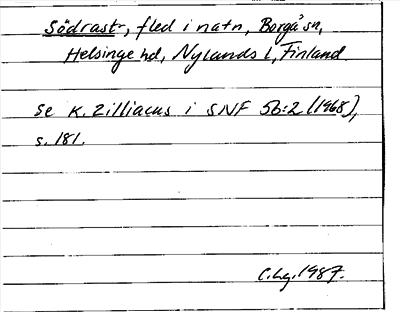 Södrast-, fled i natn, Borgå sn,
Helsinge hd, Nylands l, Finland
Se K. Zilliacus i SNF 56:2 (1968),
s. 181.
C.hg. 1987.